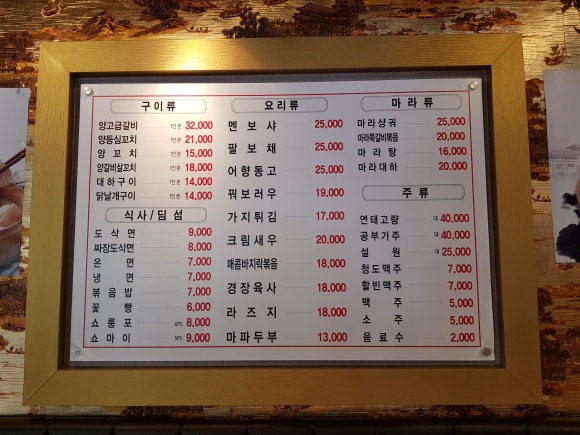 구이류
양고급갈비 1인분 32,000
양등심꼬치 1인분 21,000
양꼬치 1인분 15,000
양갈비살꼬치 1인분 18,000
대하구이 1인분 14,000
닭날개구이 1인분 14,000
식사/딤섬
도삭면 9,000
짜장도삭면 8,000
온면 7,000
냉면 7,000
볶음밥 7,000
꽃빵 6,000
쇼롱포 6PS 8,000
쇼마이 5PS 9,000
요리류
멘보샤 25,000
팔보채 25,000
어향동고 25,000
꿔보러우 19,000
가지튀김 17,000
크림새우 20,000
매콤바지락볶음 18,000
경장육사 18,000
라즈지 18,000
마파두부 13,000
마라류
마라샹궈 25,000
마라쪽갈비볶음 20,000
마라탕 16,000
마라대하 20,000
주류
연태고량 대 40,000
공부가주 대 40,000
설원 대 25,000
청도맥주 7,000
할빈맥주 7,000
맥주 5,000
소주 5,000
음료수 2,000